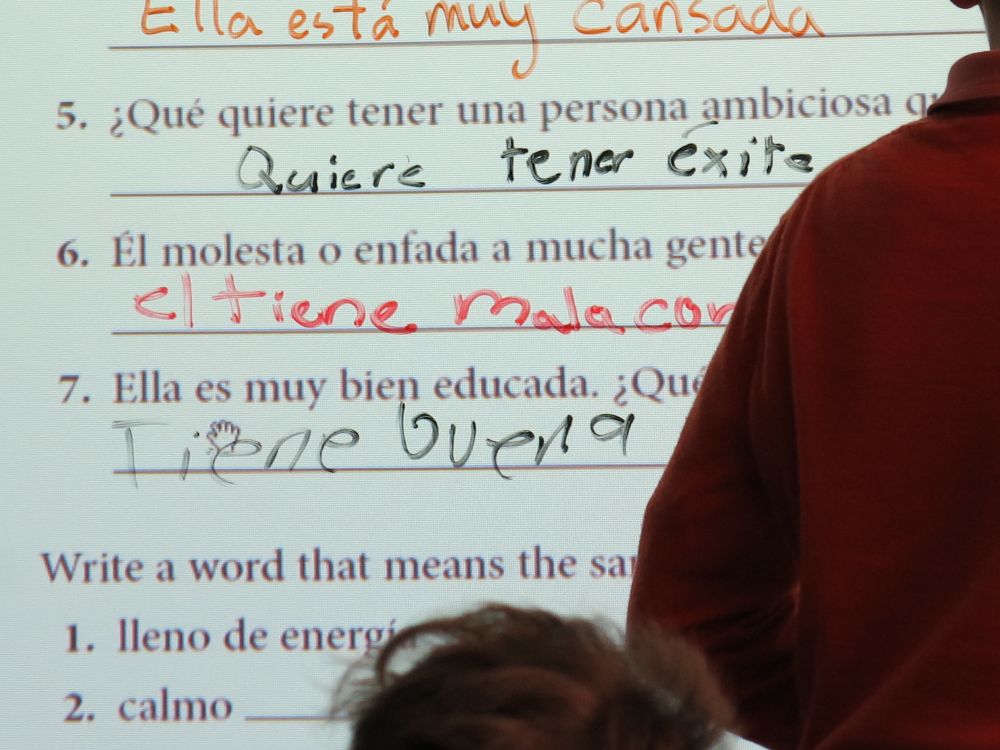 Ella está muy cansada
5. ¿Qué quiere tener una persona ambiciosa
Quiere tener éxito
6. Él molesta o enfada a mucha gente
el tiene mala
7. Ella es muy bien educada. ¿Qué
Tiene buena
Write a word that means the
1. lleno de energí
2. calmo